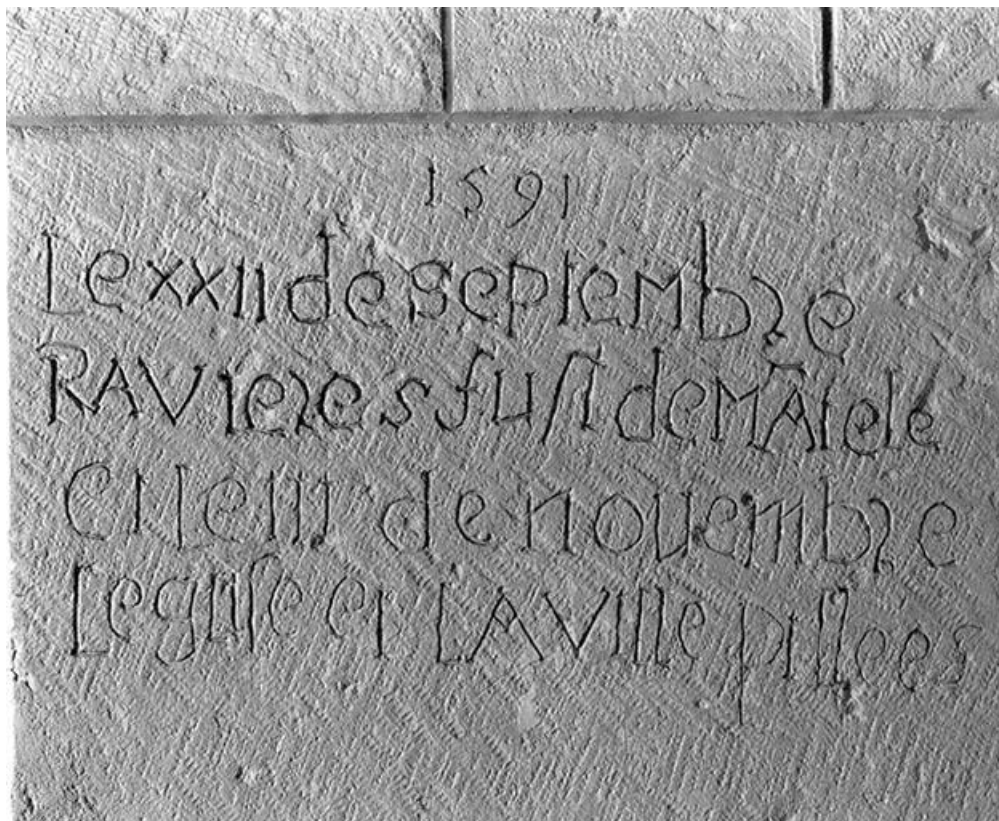 1591
Le XXII de septembre
RAVieres fust de MÃtelé
et le III de novembre
Leglise et LA VIlle pillees